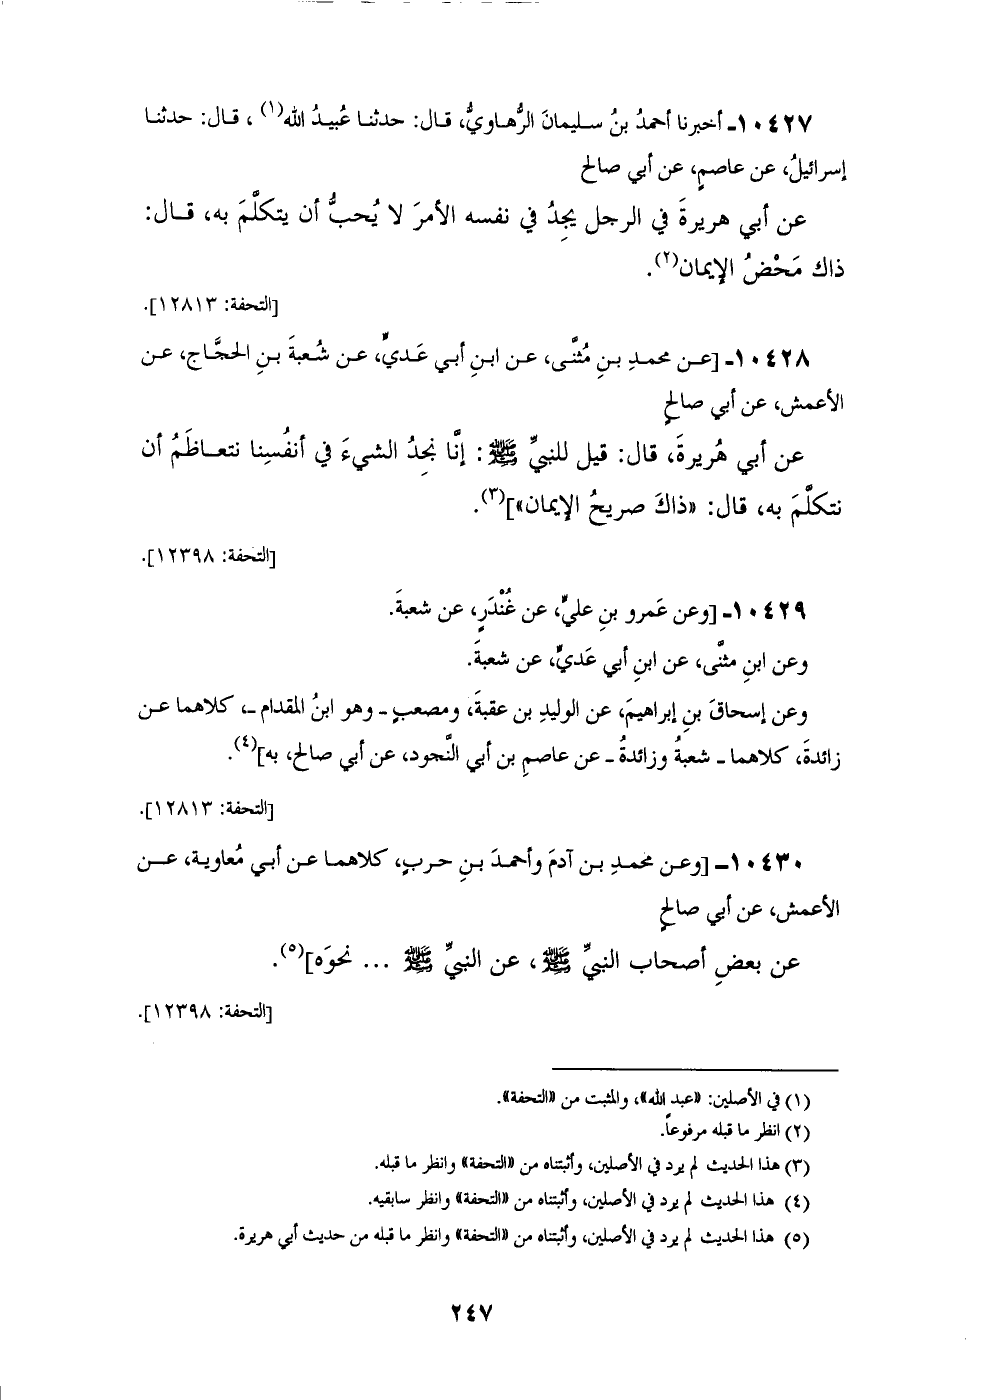 ١٠٤٢٧ـ أخبرنا أحمدُ بنُ سليمانَ الرُّهاويُّ، قال: حدثنا عُبيدُ الله(١)، قال: حدثنا
إسرائيلُ، عن عاصمٍ، عن أبي صالح
عن أبي هريرةَ في الرجل يجِدُ في نفسه الأمرَ لا يُحبُّ أن يتكلَّمَ به، قال:
ذاك مَحْضُ الإيمان(٢).
[التحفة: ١٢٨١٣].
١٠٤٢٨ـ [عن محمدِ بنِ مُثنَّى، عن ابنِ أبي عَديٍّ، عن شُعبةَ بنِ الحجَّاج، عن
الأعمش، عن أبي صالحٍ
عن أبي هُريرةَ، قال: قيل للنبيِّ ﷺ: إنَّا نجِدُ الشيءَ في أنفُسِنا نتعاظَمُ أن
نتكلَّمَ به، قال: «ذاكَ صريحُ الإيمان»](٣).
[التحفة: ١٢٣٩٨].
١٠٤٢٩ـ [وعن عَمرو بنِ عليٍّ، عن غُنْدَرٍ، عن شعبةَ.
وعن ابنِ مثنَّى، عن ابنِ أبي عَديٍّ، عن شعبةَ.
وعن إسحاقَ بنِ إبراهيمَ، عن الوليدِ بن عقبةَ، ومصعبٍ ـ وهو ابنُ المقدام ـ، كلاهما عن
زائدةَ، كلاهما ـ شعبةُ وزائدةُ ـ عن عاصمِ بن أبي النَّجود، عن أبي صالح، به](٤).
[التحفة: ١٢٨١٣].
١٠٤٣٠ـ [وعن محمدِ بن آدمَ وأحمدَ بنِ حربٍ، كلاهما عن أبي مُعاوية، عن
الأعمش، عن أبي صالحٍ
عن بعضِ أصحاب النبيِّ ﷺ، عن النبيِّ ﷺ ... نحوَه](٥).
[التحفة: ١٢٣٩٨].
(١) في الأصلين: «عبد الله»، والمثبت من «التحفة».
(٢) انظر ما قبله مرفوعاً.
(٣) هذا الحديث لم يرد في الأصلين، وأثبتناه من «التحفة» وانظر ما قبله.
(٤) هذا الحديث لم يرد في الأصلين، وأثبتناه من «التحفة» وانظر سابقيه.
(٥) هذا الحديث لم يرد في الأصلين، وأثبتناه من «التحفة» وانظر ما قبله من حديث أبي هريرة.
٢٤٧